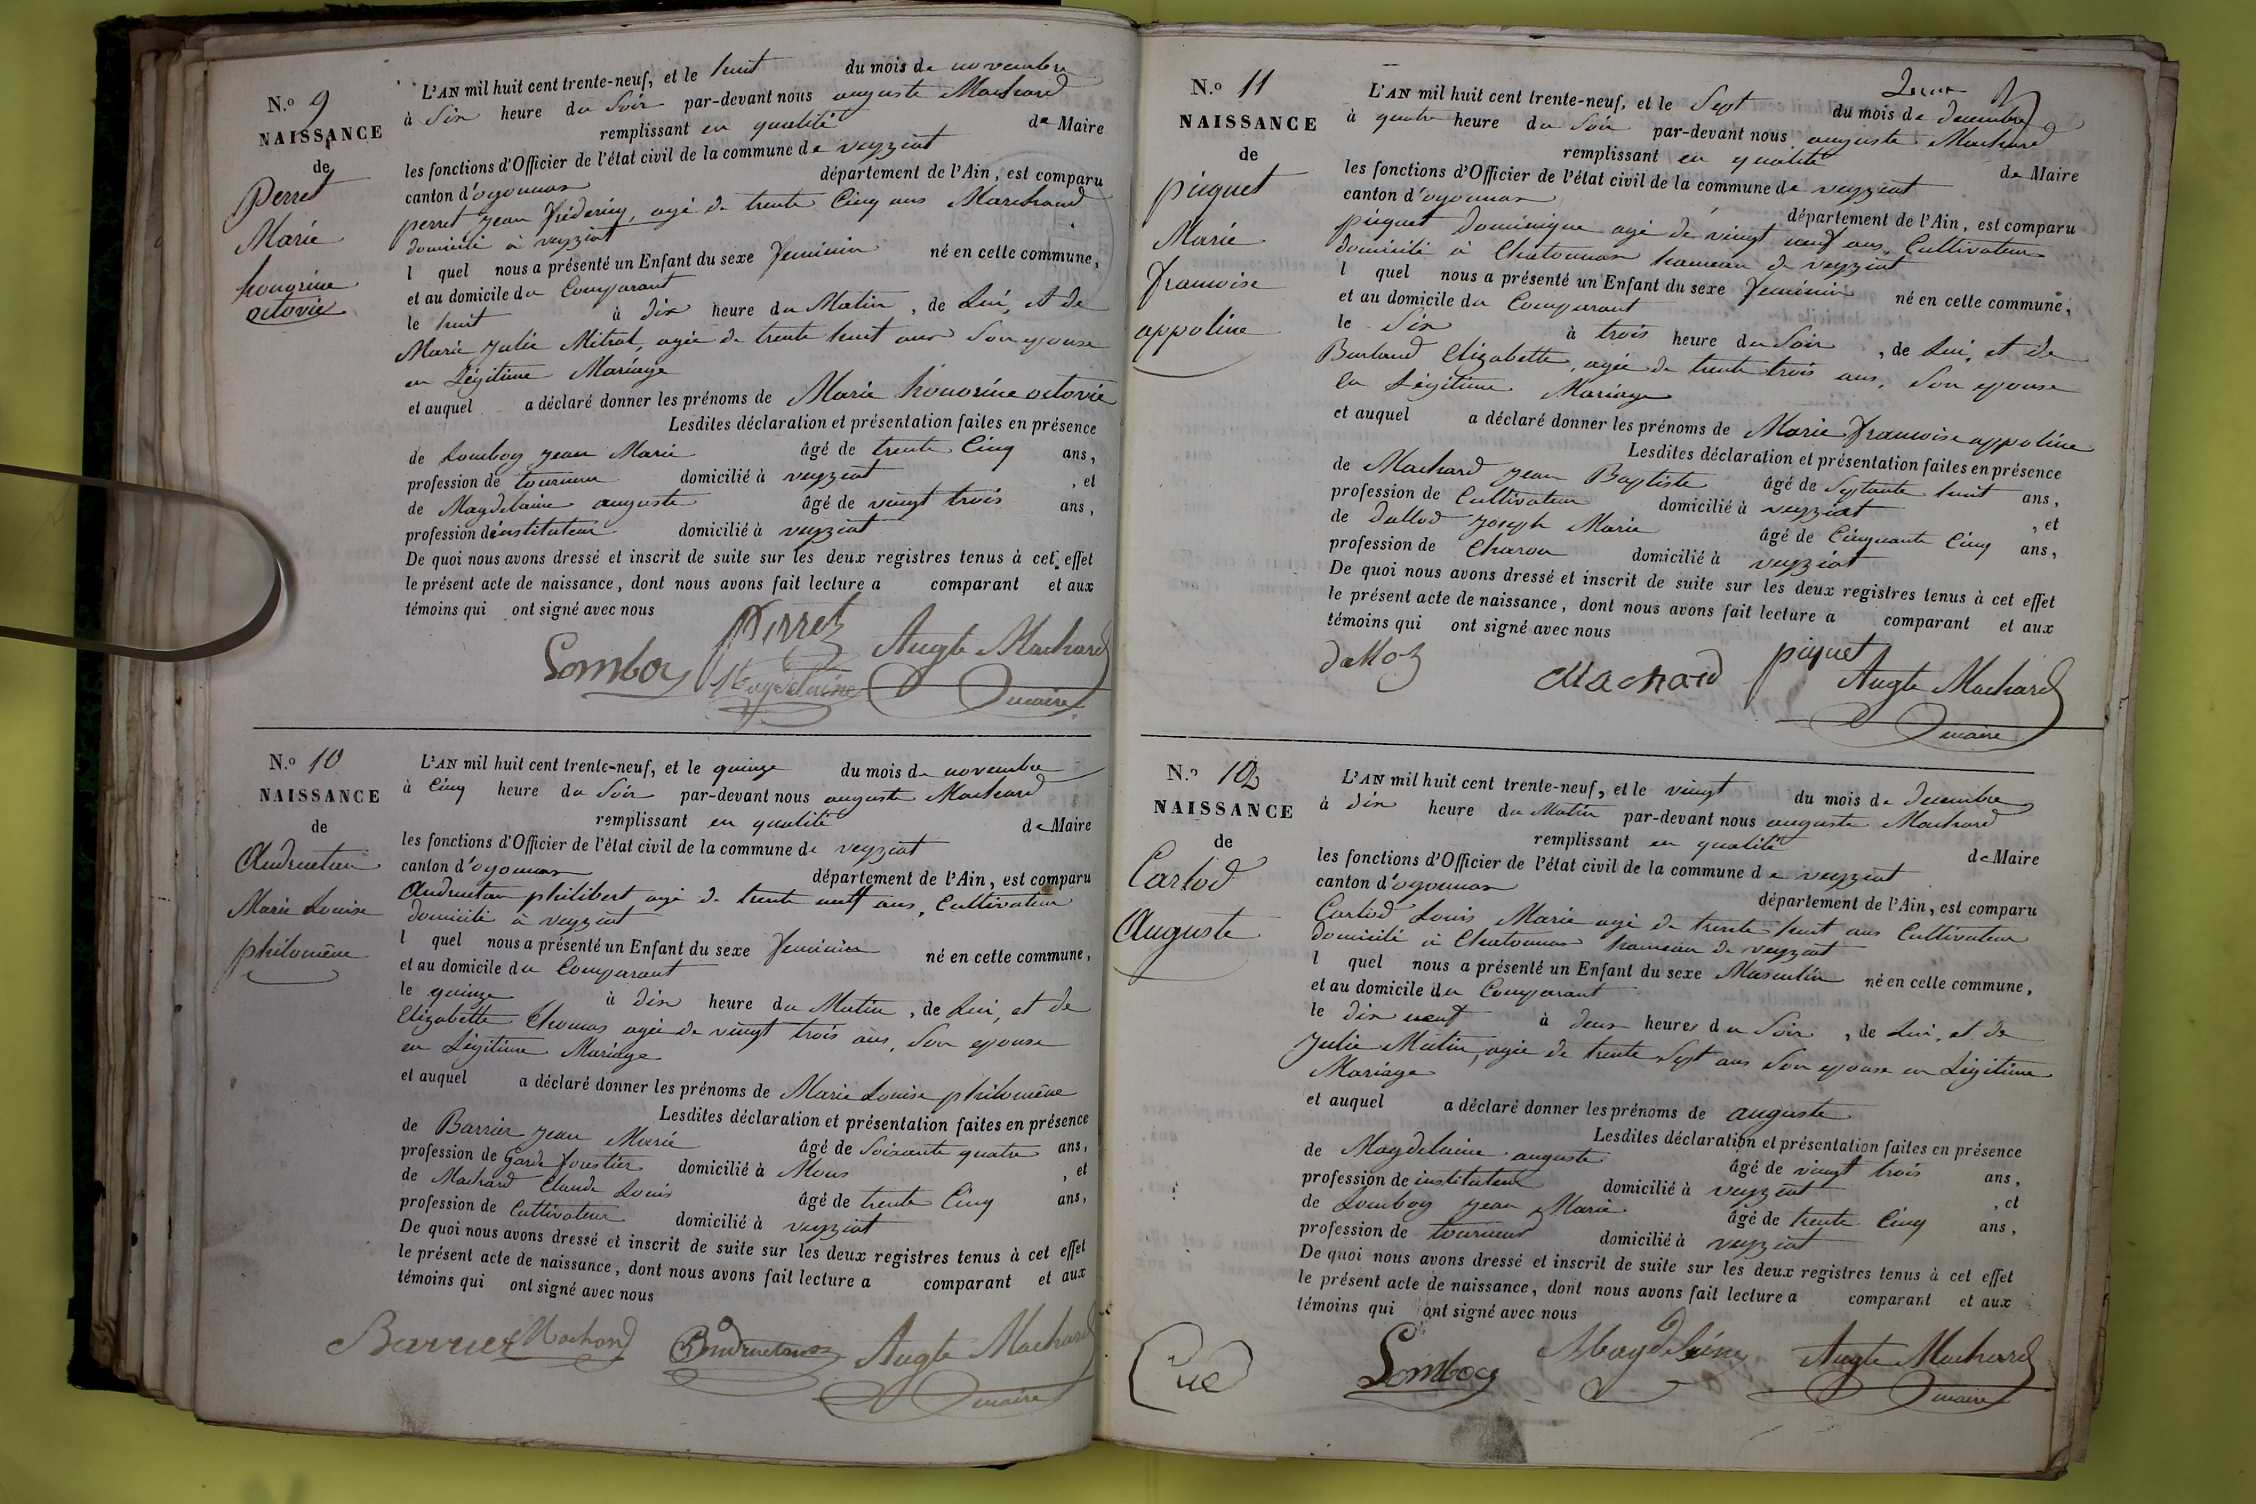 N.º 9
NAISSANCE
de
Perret
Marie
honorine
octovie
L'AN mil huit cent trente-neuf, et le huit du mois de novembre
à Six heure du Soir par-devant nous auguste Machard
remplissant en qualité de Maire
les fonctions d'Officier de l'état civil de la commune de veyziat
canton d'oyonnax département de l'Ain, est comparu
perret jean frédéric, agé de trente Cinq ans Marchand
domicilié à veyziat
l quel nous a présenté un Enfant du sexe féminin né en cette commune,
et au domicile du Comparant
le huit à dix heure du Matin, de Lui, et de
Marie julie Mitral, agée de trente huit ans Son epouse
en Légitime Mariage
et auquel a déclaré donner les prénoms de Marie honorine octovie
Lesdites déclaration et présentation faites en présence
de Lomboy jean Marie âgé de trente Cinq ans,
profession de tourneur domicilié à veyziat, et
de Magdelaine auguste âgé de vingt trois ans,
profession d'instituteur domicilié à veyziat
De quoi nous avons dressé et inscrit de suite sur les deux registres tenus à cet effet
le présent acte de naissance, dont nous avons fait lecture a comparant et aux
témoins qui ont signé avec nous
Perret
Lomboy Magdelaine Augte Machard
maire
N.º 10
NAISSANCE
de
Andruetan
Marie Louise
philomène
L'AN mil huit cent trente-neuf, et le quinze du mois de novembre
à Cinq heure du Soir par-devant nous auguste Machard
remplissant en qualité de Maire
les fonctions d'Officier de l'état civil de la commune de veyziat
canton d'oyonnax département de l'Ain, est comparu
Andruetan philibert agé de trente neuf ans, Cultivateur
domicilié à veyziat
l quel nous a présenté un Enfant du sexe féminin né en cette commune,
et au domicile du Comparant
le quinze à dix heure du Matin, de Lui, et de
Elizabette Thomas agée de vingt trois ans, Son epouse
en Légitime Mariage
et auquel a déclaré donner les prénoms de Marie Louise philomène
Lesdites déclaration et présentation faites en présence
de Barrier jean Marie âgé de Soixante quatre ans,
profession de Garde forestier domicilié à Mons, et
de Machard Claude Louis âgé de trente Cinq ans,
profession de Cultivateur domicilié à veyziat
De quoi nous avons dressé et inscrit de suite sur les deux registres tenus à cet effet
le présent acte de naissance, dont nous avons fait lecture a comparant et aux
témoins qui ont signé avec nous
Barrier Machard Andruetan Augte Machard
maire
N.º 11
NAISSANCE
de
piquet
Marie
francoise
appoline
L'AN mil huit cent trente-neuf, et le Sept du mois de decembre
à quatre heure du Soir par-devant nous auguste Machard
remplissant en qualité de Maire
les fonctions d'Officier de l'état civil de la commune de veyziat
canton d'oyonnax département de l'Ain, est comparu
piquet Dominique agé de vingt neuf ans Cultivateur
domicilié à Chatonnax hameau de veyziat
l quel nous a présenté un Enfant du sexe féminin né en cette commune,
et au domicile du Comparant
le Six à trois heure du Soir, de Lui, et de
Burlaud Elizabette, agée de trente trois ans, Son epouse
en Légitime Mariage
et auquel a déclaré donner les prénoms de Marie francoise appoline
Lesdites déclaration et présentation faites en présence
de Machard jean Baptiste âgé de Septante huit ans,
profession de Cultivateur domicilié à veyziat, et
de Dalloz joseph Marie âgé de Cinquante Cinq ans,
profession de Charon domicilié à veyziat
De quoi nous avons dressé et inscrit de suite sur les deux registres tenus à cet effet
le présent acte de naissance, dont nous avons fait lecture a comparant et aux
témoins qui ont signé avec nous
Dalloz Machard piquet Augte Machard
maire
N.º 12
NAISSANCE
de
Carlod
Auguste
L'AN mil huit cent trente-neuf, et le vingt du mois de decembre
à dix heure du Matin par-devant nous auguste Machard
remplissant en qualité de Maire
les fonctions d'Officier de l'état civil de la commune de veyziat
canton d'oyonnax département de l'Ain, est comparu
Carlod Louis Marie agé de trente huit ans Cultivateur
domicilié à Chatonnax hameau de veyziat
l quel nous a présenté un Enfant du sexe Masculin né en cette commune,
et au domicile du Comparant
le dix neuf à deux heures du Soir, de Lui, et de
Julie Matin, agée de trente Sept ans Son epouse en Légitime
Mariage
et auquel a déclaré donner les prénoms de auguste
Lesdites déclaration et présentation faites en présence
de Magdelaine auguste âgé de vingt trois ans,
profession de instituteur domicilié à veyziat, et
de Lomboy jean Marie âgé de trente Cinq ans,
profession de tourneur domicilié à veyziat
De quoi nous avons dressé et inscrit de suite sur les deux registres tenus à cet effet
le présent acte de naissance, dont nous avons fait lecture a comparant et aux
témoins qui ont signé avec nous
Lomboy Magdelaine Augte Machard
maire